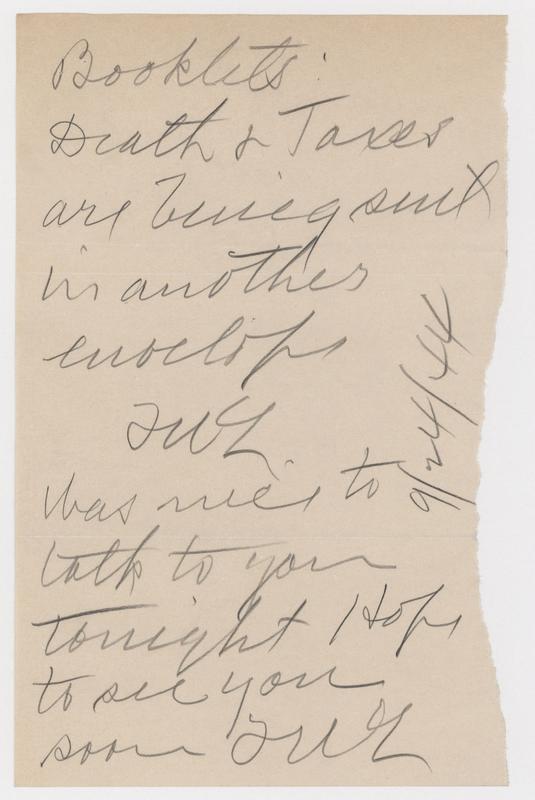 Booklets:
Death & Taxes
are being sent
in another
envelope
was nice to
talk to you
tonight Hope
to see you
soon
9/24/44